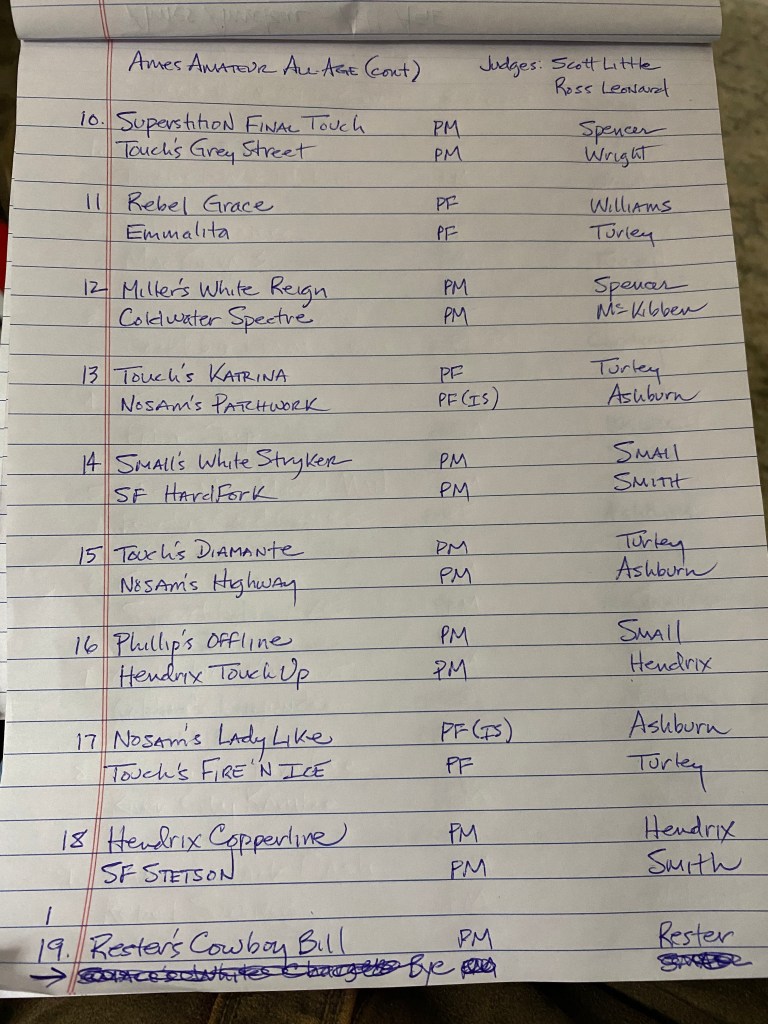 Ames Amateur All-Age (cont) Judges: Scott Little
Ross Leonard
10. Superstition Final Touch PM Spencer
Touch's Grey Street PM Wright
11 Rebel Grace PF Williams
Emmalita PF Turley
12 Miller's White Reign PM Spencer
Coldwater Spectre PM McKibben
13 Touch's Katrina PF Turley
Nosam's Patchwork PF (IS) Ashburn
14 Small's White Stryker PM Small
SF HardFork PM Smith
15 Touch's Diamante PM Turley
Nosam's Highway PM Ashburn
16 Phillip's Offline PM Small
Hendrix Touch Up PM Hendrix
17 Nosam's Lady Like PF (IS) Ashburn
Touch's Fire 'N Ice PF Turley
18 Hendrix Copperline PM Hendrix
SF Stetson PM Smith
1
19. Rester's Cowboy Bill PM Rester
→ Bye